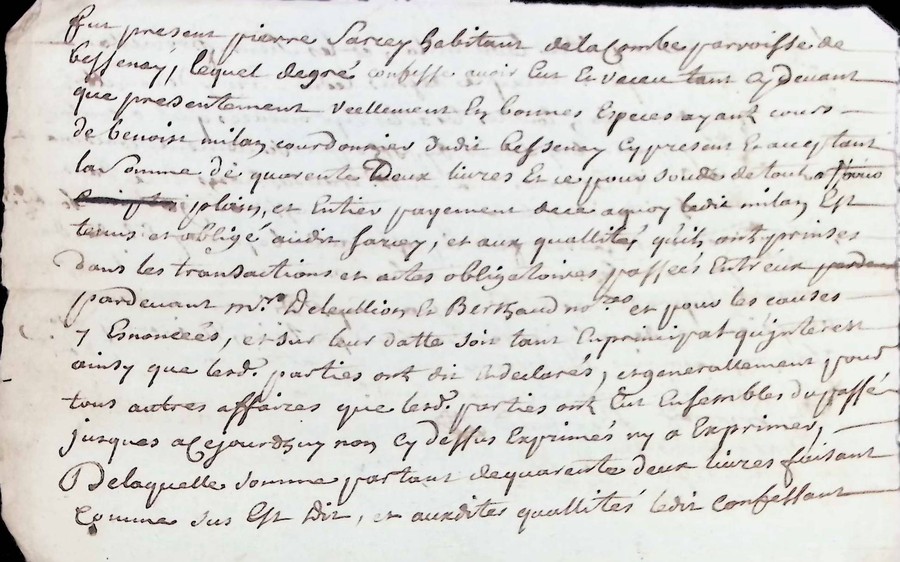 fut present pierre Sarcey habitant de la Combe parroisse de
bessenay, lequel de gré confesse avoir Eut Et receu tant cy devant
que presentement reellement En bonnes Especes ayant cours
de benoist milan courdonnier dudit bessenay cy present Et acceptant
la Somme de quarente Deux livres Et ce pour solde de tout
plain, et Entier payement de ce a quoy ledit milan Est
tenus et obligé audit sarcey, et aux quallités qu'ils ont prinses
dans les transactions et actes obligatoires passées Entreux
pardevant mrs Deleullion Et Berthaud nores et pour les causes
y Enoncées, et sur leur datte soit tant En principal qu'interest
ainsy que lesd. parties ont dit Et declarés, et generallement pour
tous autres affaires que lesd. parties ont Eut Ensembles du passé
jusques a ce jourdhuy non cy dessus Exprimés ny a Exprimer,
De laquelle somme partant de quarente deux livres faisant
comme sus Est dit, et auxdites quallités ledit confessant